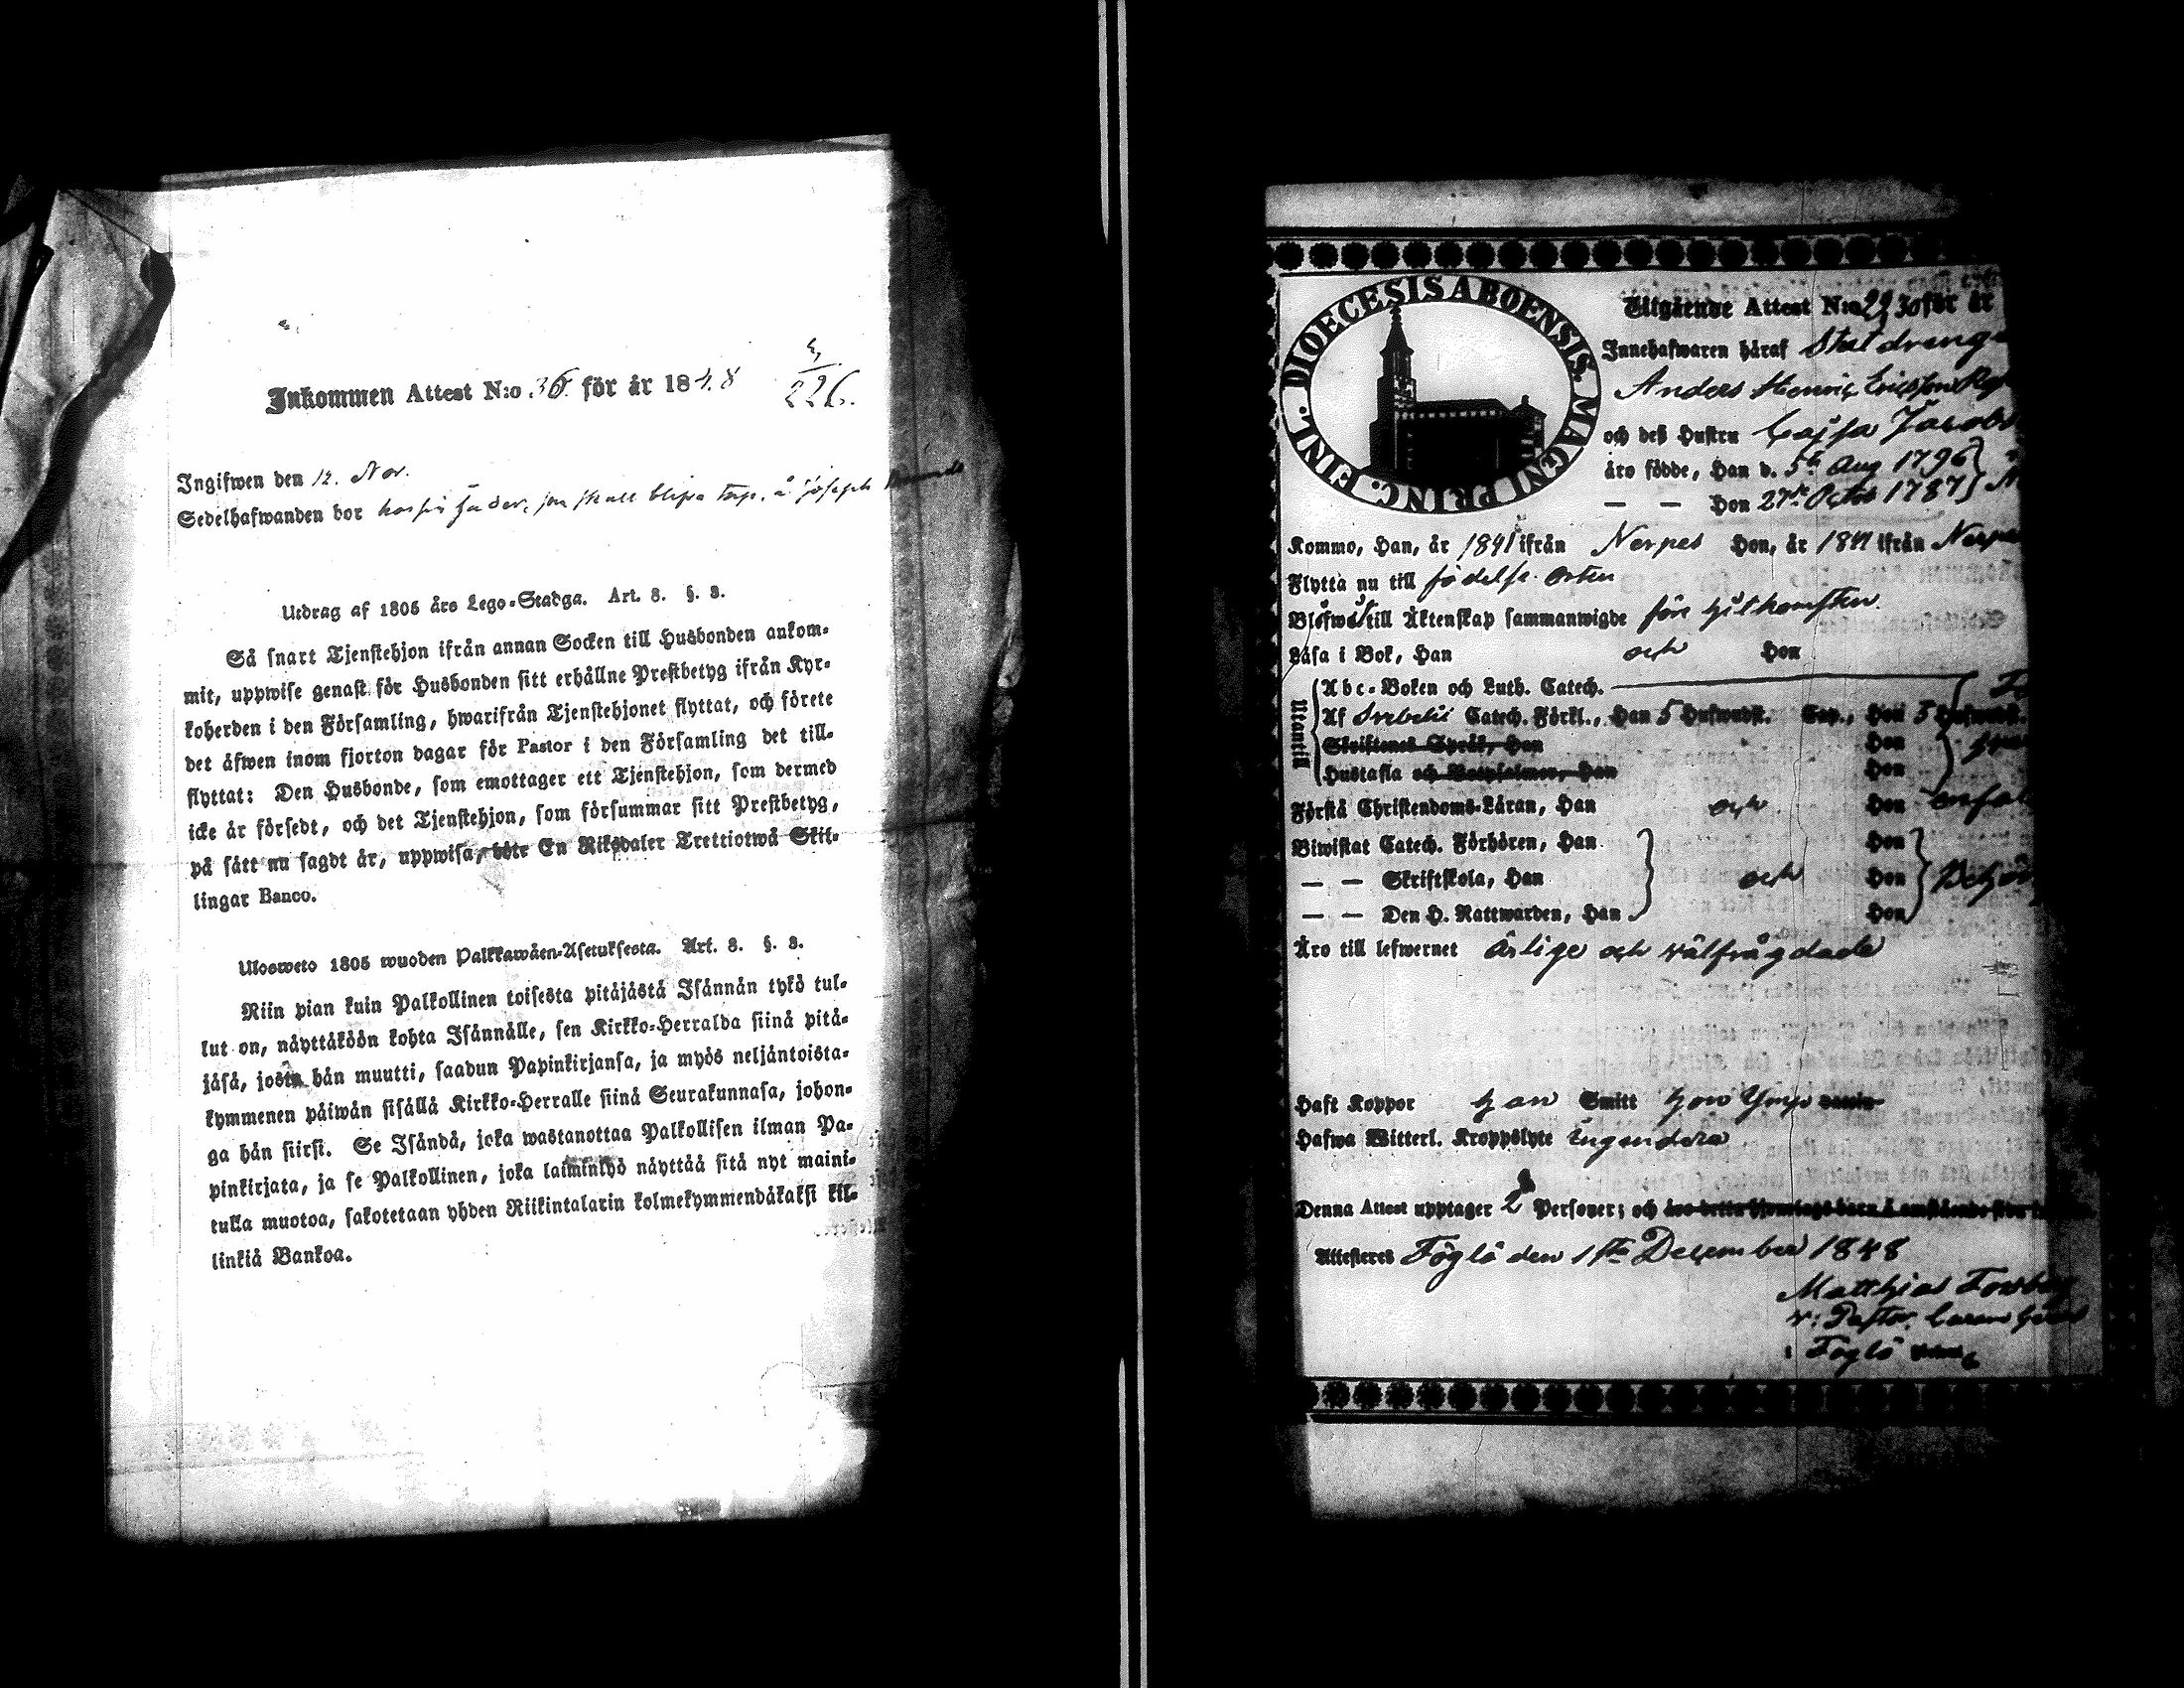 Inkommen Attest N:o 36 för år 1848
226.
Ingifwen den 12. Nov.
Sedelhafwanden bor hos sin fader, som skall blifva torp. å Joseph
Utdrag af 1805 års Lego-Stadga. Art. 8. §. 3.
Så snart Tjenstehjon ifrån annan Socken till Husbonden ankom-
mit, uppwise genast för Husbonden sitt erhållne Prestbetyg ifrån Kyr-
koherden i den Församling, hwarifrån Tjenstehjonet flyttat, och förete
det äfwen inom fjorton dagar för Pastor i den Församling det till-
flyttat: Den Husbonde, som emottager ett Tjenstehjon, som dermed
icke är försedt, och det Tjenstehjon, som försummar sitt Prestbetyg,
på sätt nu sagdt är, uppwisa, böte En Riksdaler Trettiotwå Skil-
lingar Banco.
Ulosweto 1805 wuoden Palkkawäen-Asetuksesta. Art. 8. §. 3.
Niin pian kuin Palkollinen toisesta pitäjästä Isännän tykö tul-
lut on, näyttäköön kohta Isännälle, sen Kirkko-Herralda siinä pitä-
jäsä, josta hän muutti, saadun Papinkirjansa, ja myös neljäntoista-
kymmenen päiwän sisällä Kirkko-Herralle siinä Seurakunnasa, johon-
ga hän siirsi. Se Isändä, joka wastanottaa Palkollisen ilman Pa-
pinkirjata, ja se Palkollinen, joka laiminlyö näyttää sitä nyt maini-
tulla muotoa, sakotetaan yhden Riikintalarin kolmekymmendäkaksi kil-
linkiä Bankoa.
DIOECESIS ABOENSIS. MAGNI PRINC. FINL.
Utgående Attest N:o 29, 30 för år
Innehafwaren häraf Statdrenge
Anders Henric Ericsson
och deß Hustru Cajsa Jacobs
äro födde, Han d. 5te Aug 1796
— — Hon 27de Octob 1787
Kommo, Han, år 1841 ifrån Nerpes Hon, år 1841 ifrån Nerpe
Flytta nu till födelse orten
Blefwo till Äktenskap sammanwigde före hitkomsten.
Läsa i Bok, Han och Hon
Utantill
Abc-Boken och Luth. Catech.
Af Svebelii Catech. Förkl., Han 5 Hufwudst. Cap., Hon 5 Hufwudst.
Skriftenes Språk, Han Hon
Hustafla och Botpsalmer, Han Hon
Förstå Christendoms-Läran, Han och Hon enfal
Biwistat Catech. Förhören, Han Hon
— — Skriftskola, Han och Hon Behör
— — Den H. Nattwarden, Han Hon
Äro till lefwernet ärlige och välfrägdade
Haft Koppor han Smitt hon Ymp
Hafwa Witterl. Kroppslyte ingendera
Denna Attest upptager 2 Personer; och
Attesteres Föglö den 1sta December 1848
Matthias
v: Pastor
i Föglö